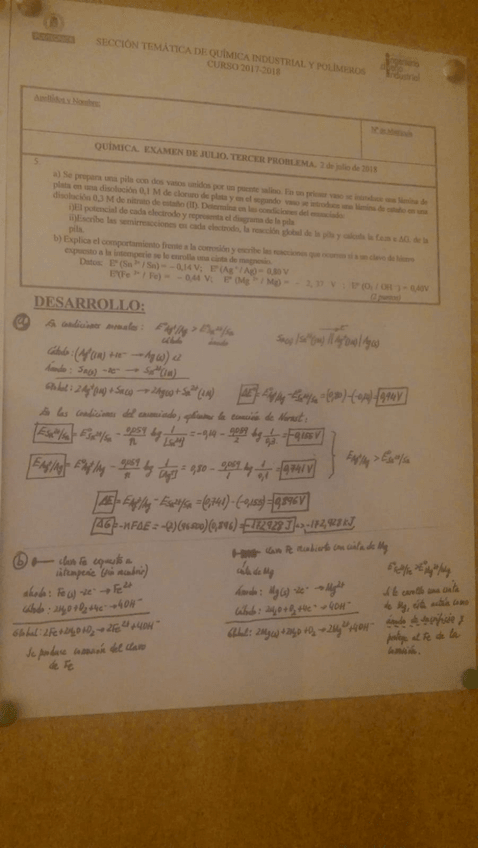 SECCIÓN TEMÁTICA DE QUÍMICA INDUSTRIAL Y POLÍMEROS
CURSO 2017-2018
Ingeniería
Diseño
Industrial
Apellidos y Nombre:
Nº de matrícula
QUÍMICA. EXAMEN DE JULIO. TERCER PROBLEMA. 2 de julio de 2018
a) Se prepara una pila con dos vasos unidos por un puente salino. En un primer vaso se introduce una lámina de
plata en una disolución 0,1 M de cloruro de plata y en el segundo vaso se introduce una lámina de estaño en una
disolución 0,3 M de nitrato de estaño (II). Determina en las condiciones del enunciado:
i)El potencial de cada electrodo y representa el diagrama de la pila
ii)Escribe las semirreacciones en cada electrodo, la reacción global de la pila y calcula la f.e.m a ΔGr de la
pila.
b) Explica el comportamiento frente a la corrosión y escribe las reacciones que ocurren si a un clavo de hierro
expuesto a la intemperie se le enrolla una cinta de magnesio.
Datos: Eº (Sn ²⁺ / Sn) = – 0,14 V; Eº (Ag ⁺ / Ag) = 0,80 V
Eº(Fe ²⁺ / Fe) = – 0,44 V; Eº (Mg ²⁺ / Mg) = – 2, 37 V ; Eº (O₂ / OH ⁻) = 0,40V.
(2 puntos)
DESARROLLO:
a) En condiciones normales: EºAg⁺/Ag > EºSn²⁺/Sn
cátodo ánodo
Sn(s) | Sn²⁺(1M) || Ag⁺(1M) | Ag(s)
Cátodo: (Ag⁺(1M) + 1e⁻ → Ag(s)) x2
Ánodo: Sn(s) - 2e⁻ → Sn²⁺(1M)
Global: 2Ag⁺(1M) + Sn(s) → 2Ag(s) + Sn²⁺(1M) ΔEº = EºAg⁺/Ag - EºSn²⁺/Sn = (0,80) - (-0,14) = 0,94V
En las condiciones del enunciado, aplicamos la ecuación de Nernst:
ESn²⁺/Sn = EºSn²⁺/Sn - 0,059/n log 1/[Sn²⁺] = -0,14 - 0,059/2 log 1/0,3 = -0,155V
EAg⁺/Ag = EºAg⁺/Ag - 0,059/n log 1/[Ag⁺] = 0,80 - 0,059/1 log 1/0,1 = 0,741V
EAg⁺/Ag > ESn²⁺/Sn
ΔE = EAg⁺/Ag - ESn²⁺/Sn = (0,741) - (-0,155) = 0,896V
ΔG = -nFΔE = -(2)(96500)(0,896) = -172928J ⇒ -172,928kJ
b) clavo Fe expuesto a
intemperie (sin recubrir)
ánodo: Fe(s) - 2e⁻ → Fe²⁺
Cátodo: 2H₂O + O₂ + 4e⁻ → 4OH⁻
Global: 2Fe + 2H₂O + O₂ → 2Fe²⁺ + 4OH⁻
Se produce corrosión del clavo
de Fe
clavo Fe recubierto con cinta de Mg
cinta de Mg
Ánodo: Mg(s) - 2e⁻ → Mg²⁺
Cátodo: 2H₂O + O₂ + 4e⁻ → 4OH⁻
Global: 2Mg(s) + 2H₂O + O₂ → 2Mg²⁺ + 4OH⁻
EºFe²⁺/Fe > EºMg²⁺/Mg
Si le enrollo una cinta
de Mg, este actúa como
ánodo de sacrificio y
protege al Fe de la
corrosión.